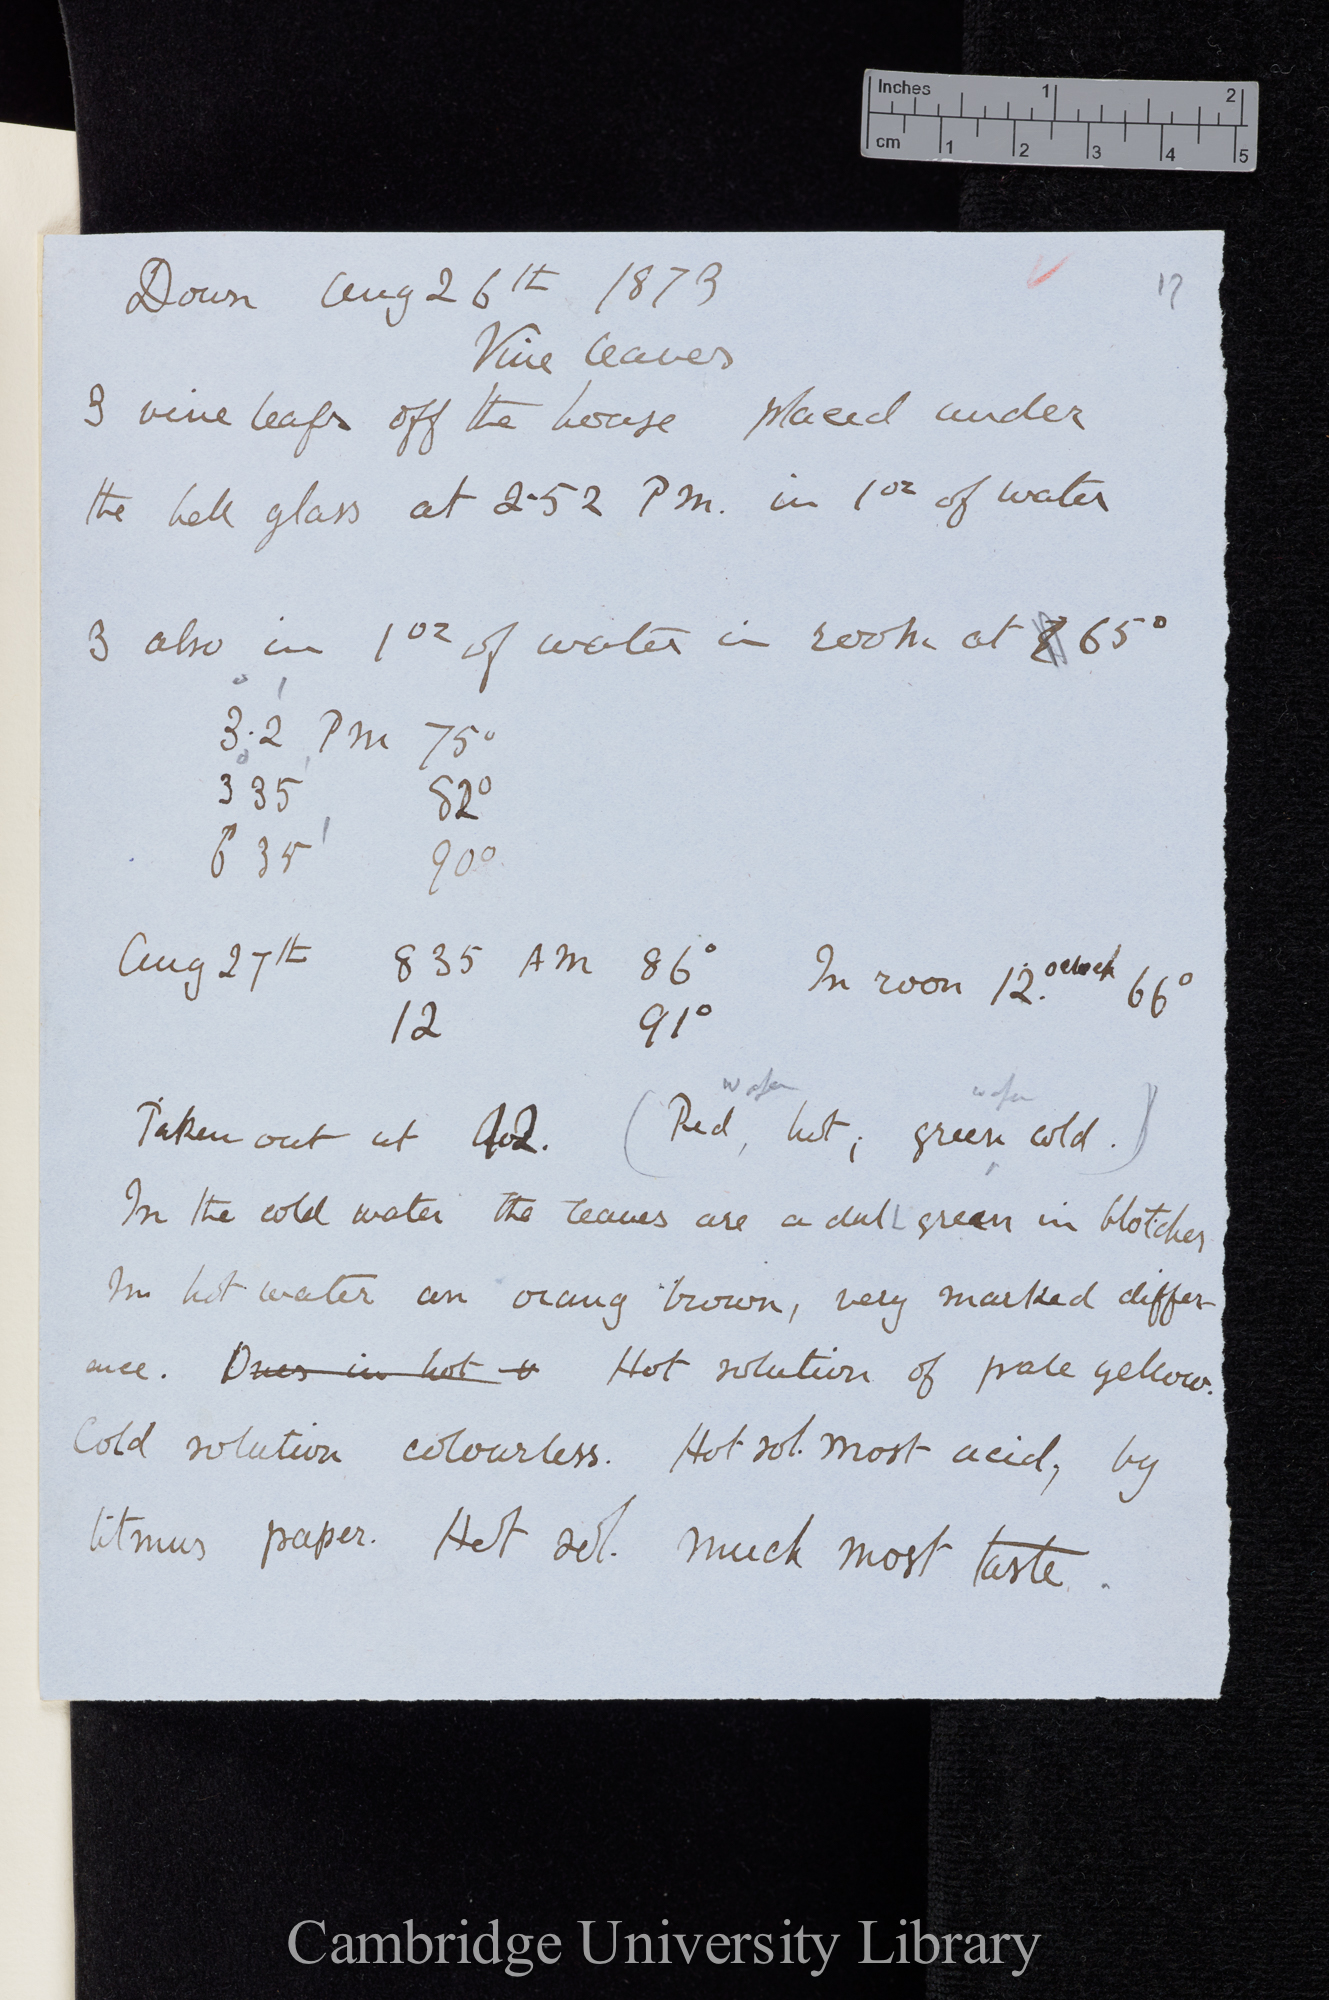 Inches 1 2
cm 1 2 3 4 5
Down Aug 26th 1873
17
Vine leaves
3 vine leafs off the house placed under
the bell glass at 2.52 P.M. in 1 oz of water
3 also in 1 oz of water in room at 65°
3°.2' PM 75°
3° 35' 82°
6 35' 90°
Aug 27th 8 35 AM 86° In room 12. oclock 66°
12 91°
wafer wafer
Taken out at 12. (Red, hot; green cold.)
In the cold water the leaves are a dull green in blotches
In hot water an orang brown, very marked differ-
ence. Ones in hot Hot solution of pale yellow.
Cold solution colourless. Hot sol. most acid, by
litmus paper. Hot sol. much most taste.
Cambridge University Library